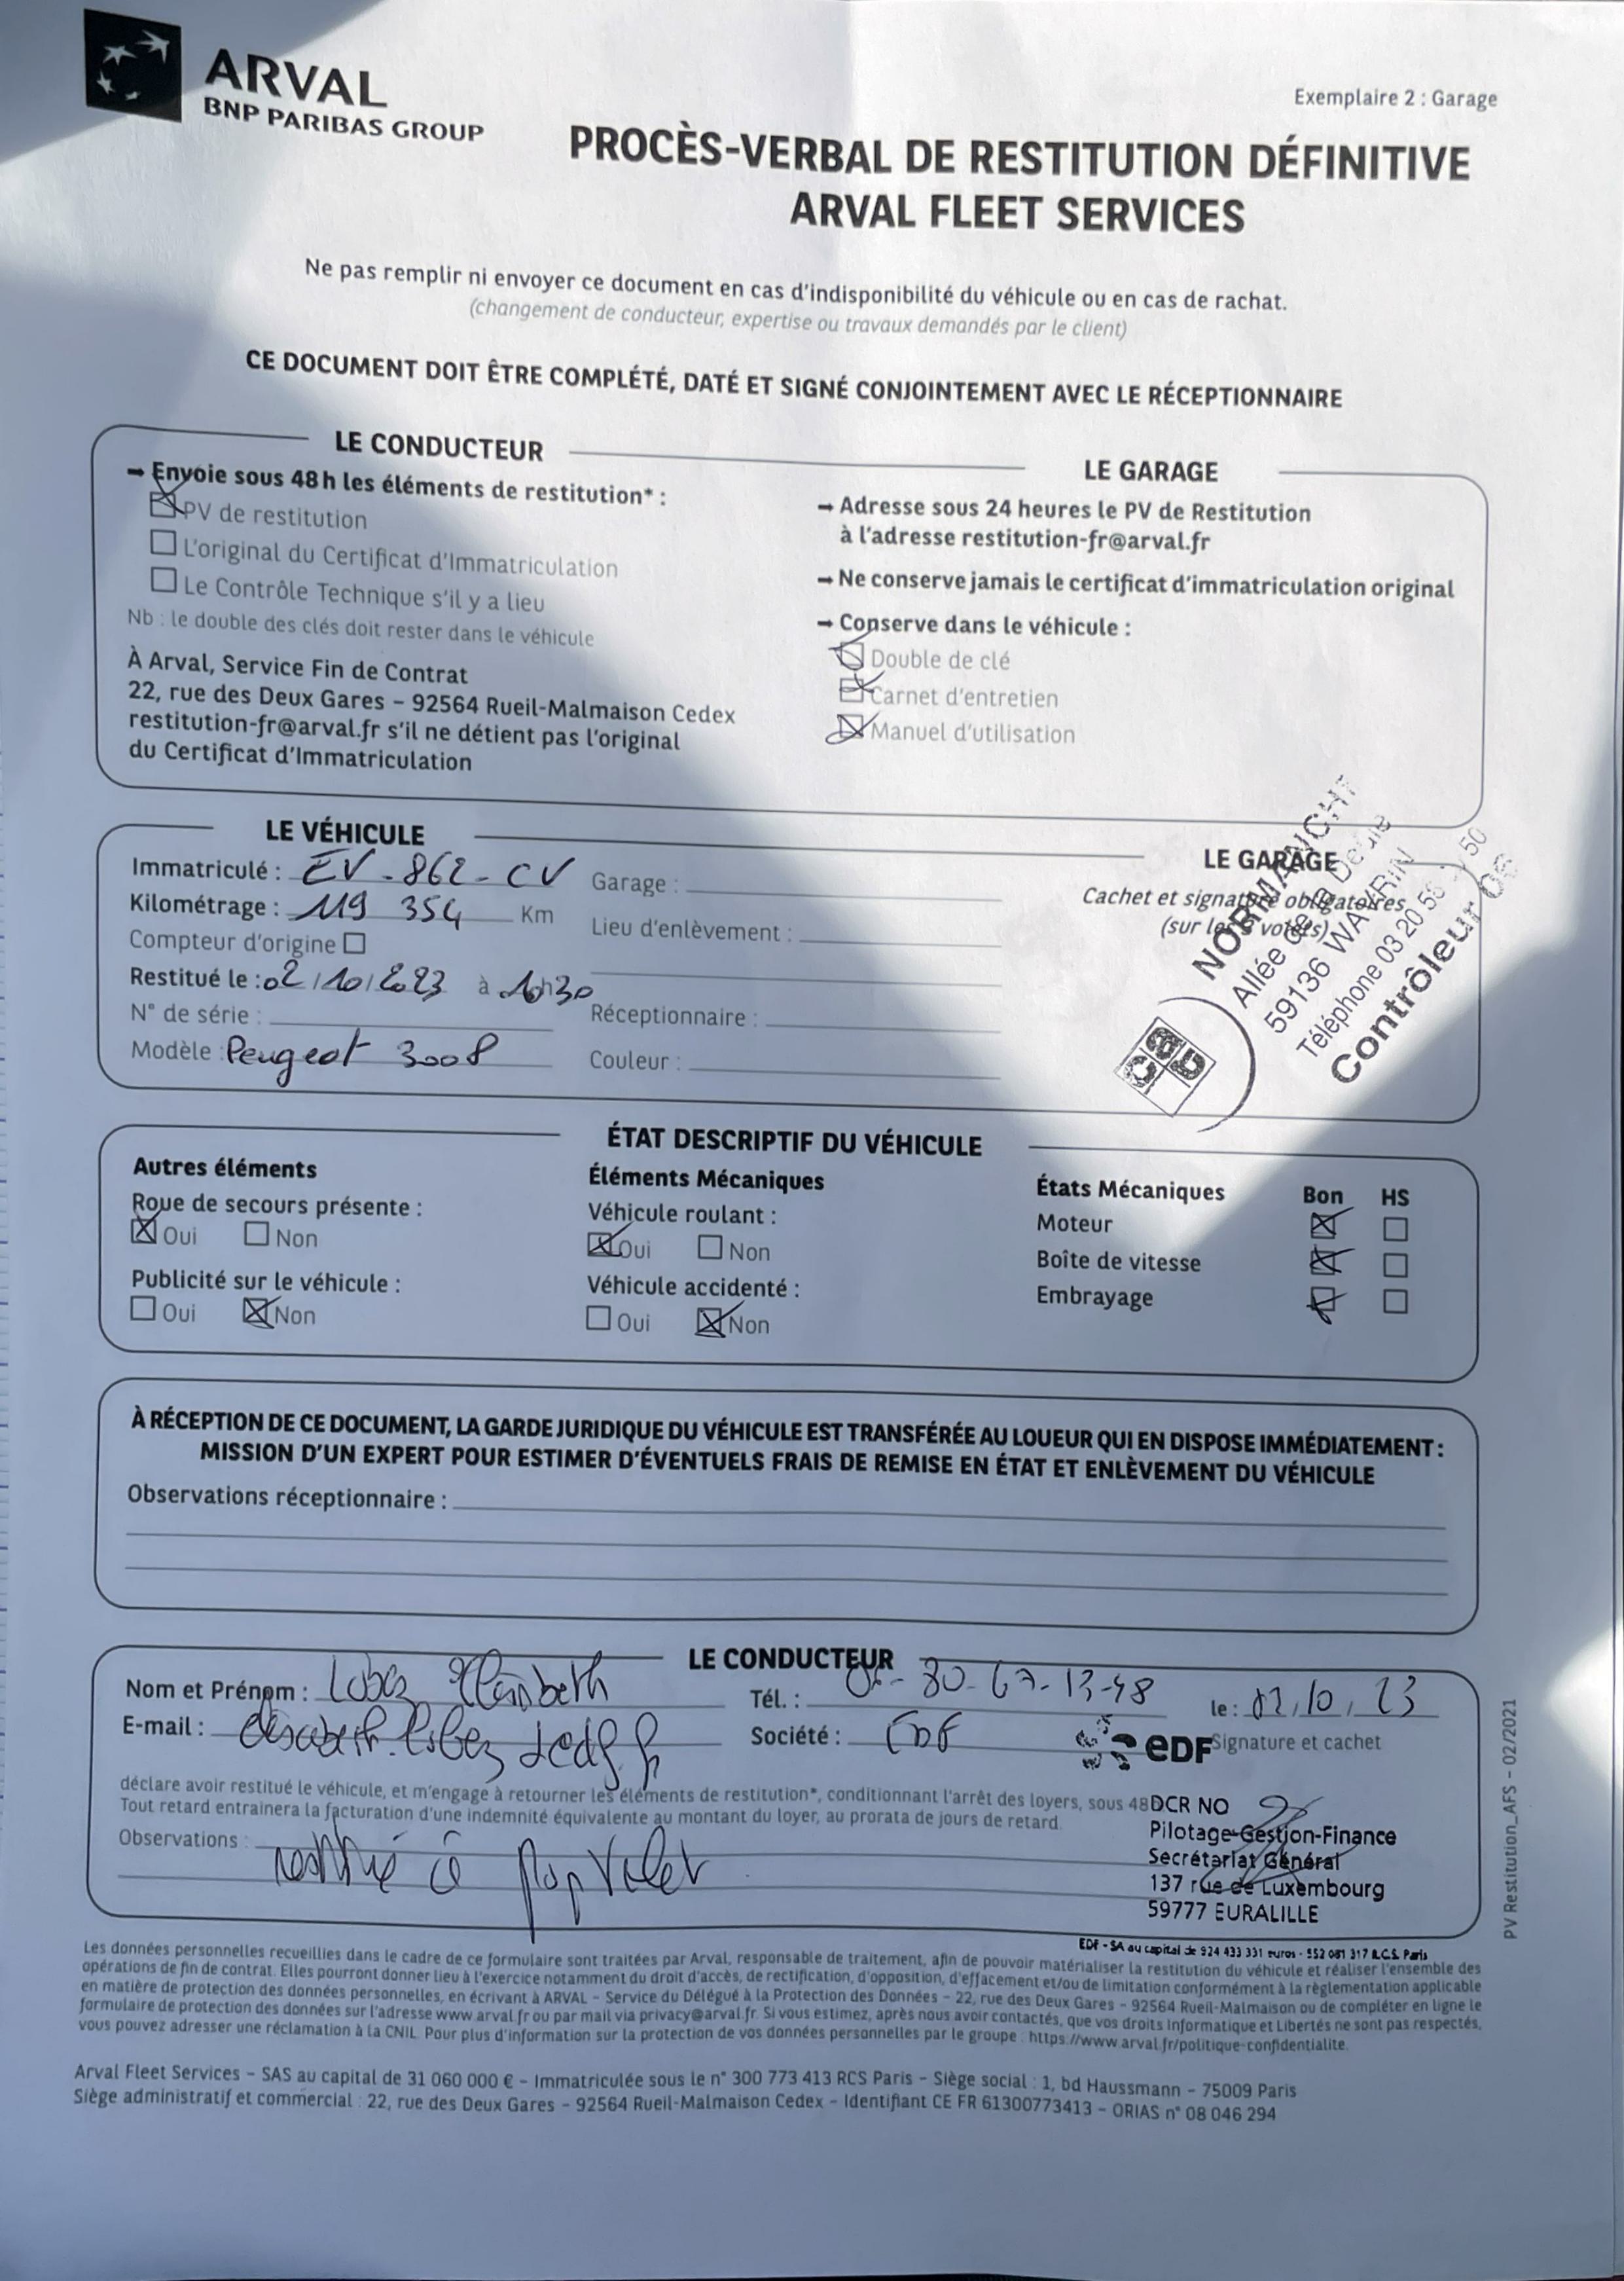 ARVAL
BNP PARIBAS GROUP
Exemplaire 2 : Garage
PROCÈS-VERBAL DE RESTITUTION DÉFINITIVE
ARVAL FLEET SERVICES
Ne pas remplir ni envoyer ce document en cas d'indisponibilité du véhicule ou en cas de rachat.
(changement de conducteur, expertise ou travaux demandés par le client)
CE DOCUMENT DOIT ÊTRE COMPLÉTÉ, DATÉ ET SIGNÉ CONJOINTEMENT AVEC LE RÉCEPTIONNAIRE
LE CONDUCTEUR
➞ Envoie sous 48 h les éléments de restitution* :
PV de restitution
L'original du Certificat d'Immatriculation
Le Contrôle Technique s'il y a lieu
Nb : le double des clés doit rester dans le véhicule
À Arval, Service Fin de Contrat
22, rue des Deux Gares – 92564 Rueil-Malmaison Cedex
restitution-fr@arval.fr s'il ne détient pas l'original
du Certificat d'Immatriculation
LE GARAGE
➞ Adresse sous 24 heures le PV de Restitution
à l'adresse restitution-fr@arval.fr
➞ Ne conserve jamais le certificat d'immatriculation original
➞ Conserve dans le véhicule :
Double de clé
Carnet d'entretien
Manuel d'utilisation
LE VÉHICULE
Immatriculé : EV-862-CV
Kilométrage : 119 354 Km
Compteur d'origine
Restitué le : 02/10/2023 à h30
N° de série :
Modèle : Peugeot 3008
Garage :
Lieu d'enlèvement :
Réceptionnaire :
Couleur :
LE GARAGE
Cachet et signature obligatoires
(sur les volets)
Allée de la Deûle
59136 WAVRIN
Téléphone 03 20 50
Contrôleur 06
cat
ÉTAT DESCRIPTIF DU VÉHICULE
Autres éléments
Roue de secours présente :
Oui Non
Publicité sur le véhicule :
Oui Non
Éléments Mécaniques
Véhicule roulant :
Oui Non
Véhicule accidenté :
Oui Non
États Mécaniques Bon HS
Moteur
Boîte de vitesse
Embrayage
À RÉCEPTION DE CE DOCUMENT, LA GARDE JURIDIQUE DU VÉHICULE EST TRANSFÉRÉE AU LOUEUR QUI EN DISPOSE IMMÉDIATEMENT :
MISSION D'UN EXPERT POUR ESTIMER D'ÉVENTUELS FRAIS DE REMISE EN ÉTAT ET ENLÈVEMENT DU VÉHICULE
Observations réceptionnaire :
LE CONDUCTEUR
Nom et Prénom :
E-mail :
Tél. : 06-80-67-13-48
Société : EDF
le : 02/10/23
Signature et cachet
eDF
déclare avoir restitué le véhicule, et m'engage à retourner les éléments de restitution*, conditionnant l'arrêt des loyers, sous 48
Tout retard entrainera la facturation d'une indemnité équivalente au montant du loyer, au prorata de jours de retard.
Observations : restitué à popvalet
DCR NO
Pilotage-Gestion-Finance
Secrétariat Général
137 rue de Luxembourg
59777 EURALILLE
EDF - SA au capital de 924 433 331 euros - 552 081 317 R.C.S. Paris
Les données personnelles recueillies dans le cadre de ce formulaire sont traitées par Arval, responsable de traitement, afin de pouvoir matérialiser la restitution du véhicule et réaliser l'ensemble des
opérations de fin de contrat. Elles pourront donner lieu à l'exercice notamment du droit d'accès, de rectification, d'opposition, d'effacement et/ou de limitation conformément à la règlementation applicable
en matière de protection des données personnelles, en écrivant à ARVAL – Service du Délégué à la Protection des Données – 22, rue des Deux Gares – 92564 Rueil-Malmaison ou de compléter en ligne le
formulaire de protection des données sur l'adresse www.arval.fr ou par mail via privacy@arval.fr. Si vous estimez, après nous avoir contactés, que vos droits Informatique et Libertés ne sont pas respectés,
vous pouvez adresser une réclamation à la CNIL. Pour plus d'information sur la protection de vos données personnelles par le groupe : https://www.arval.fr/politique-confidentialite.
Arval Fleet Services – SAS au capital de 31 060 000 € – Immatriculée sous le n° 300 773 413 RCS Paris – Siège social : 1, bd Haussmann – 75009 Paris
Siège administratif et commercial : 22, rue des Deux Gares – 92564 Rueil-Malmaison Cedex – Identifiant CE FR 61300773413 – ORIAS n° 08 046 294
PV Restitution_AFS – 02/2021